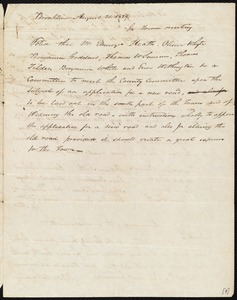 Brookline August 20. 1827
In Town meeting
Voted that Mr Ebenezer Heath Oliver Whyte
Benjamin Goddard, Thomas W Sumner, Thomas
Tilden Benjamin White and Enos Withington be a
Committee to meet the County Committee upon the
subject of an application for a new road,
to be laid out in the south part of the Town and of
widening the old road with instructions wholly to oppose
the application for a new road and also for altering the
old road provided it should create a great expense
for the Town